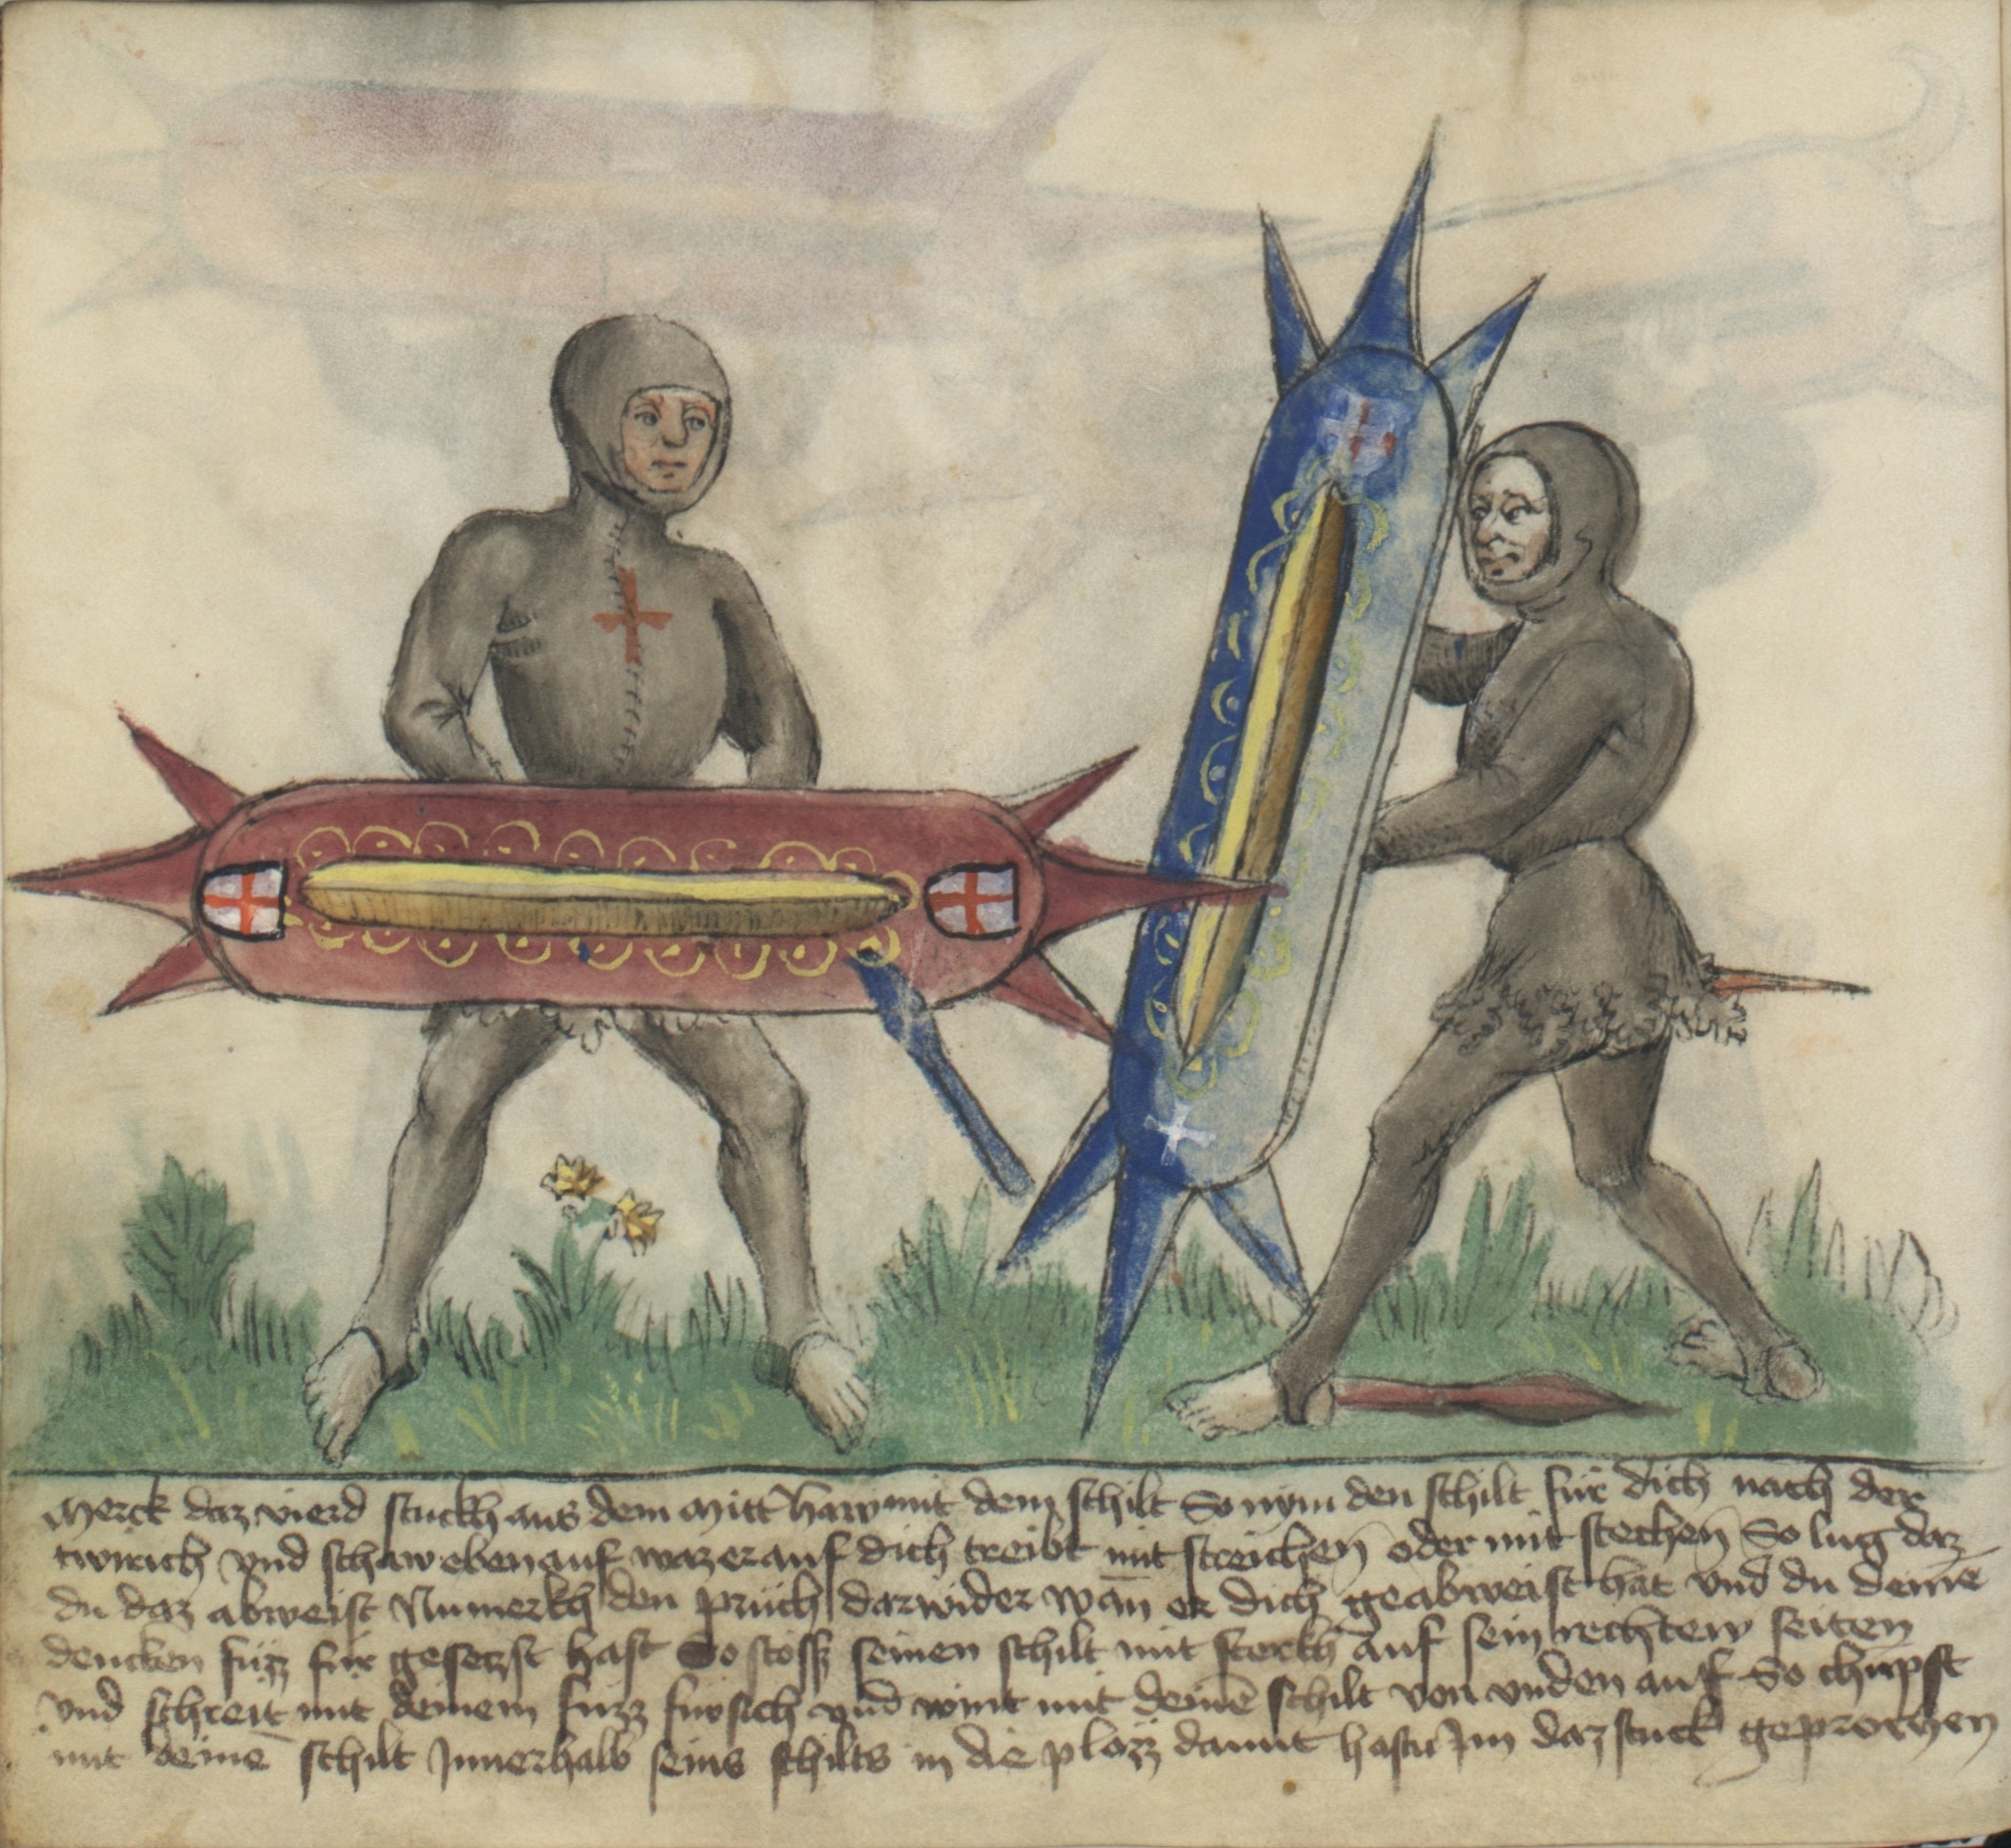 Merck daz vierd stuckh aus dem Mitt haw mit dem schilt So nym den schilt für dich nach der
twirich vnd schaw eben auf waz er auf dich treibt mit streichen oder mit stechen So lug daz
du daz abweist Nu merkh den prüch darwider wan er dich geabweist hat vnd du deine
dencken füzz für gesetzt hast So stöss seinen schilt mit sterkh auf sein rechtew seiten
vnd schreit mit deinem fuzz fürsich vnd wint mit deine schilt von vnden auf So chupst
mit deine schilt Innerhalb seins schilts in die plözz damit hastu Im daz stuck geprochen